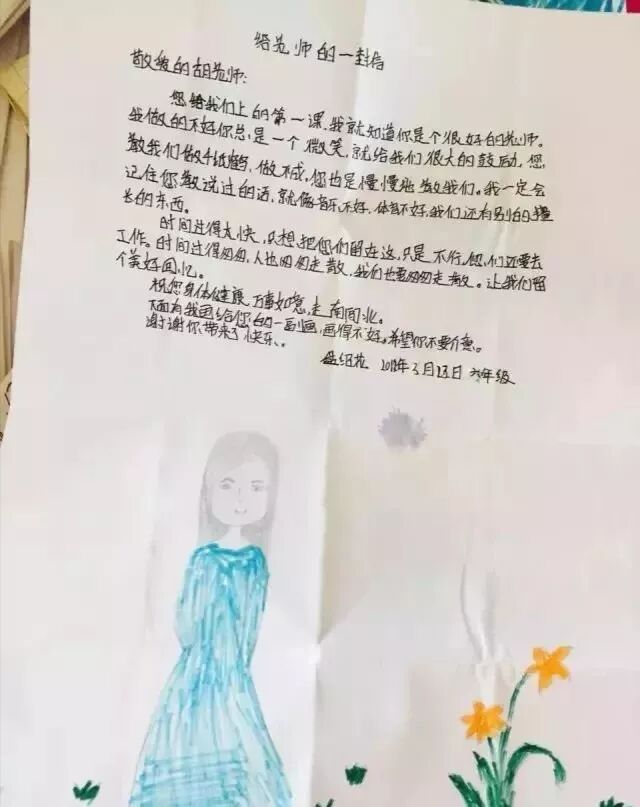 给老师的一封信
敬爱的胡老师:
您给我们上的第一课,我就知道你是个很好的老师。
我做的不好你总是一个微笑,就给我们很大的鼓励,您
教我们做千纸鹤,做不成,您也是慢慢地教我们。我一定会
记住您教说过的话,就像音乐不好,体育不好,我们还有别的擅
长的东西。
时间过得太快,只想把您们留在这,只是不行,您们还要去
工作。时间过得匆匆,人也匆匆走散,我们也要匆匆走散。让我们留
个美好回忆。
祝您身体健康,万事如意,走南闯北。
下面为我画给您的一副画,画得不好。希望你不要介意。
谢谢你带来了快乐、。
2018年3月23日 六年级